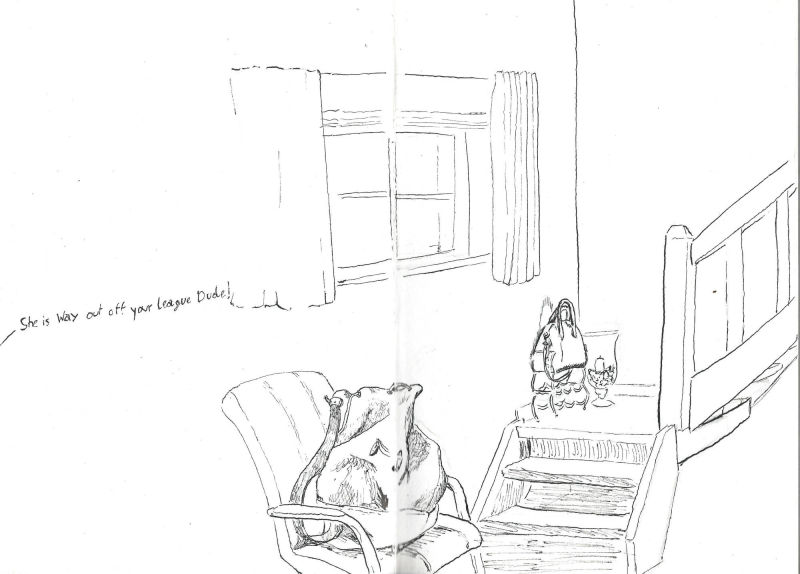 She is way out off your League Dude!